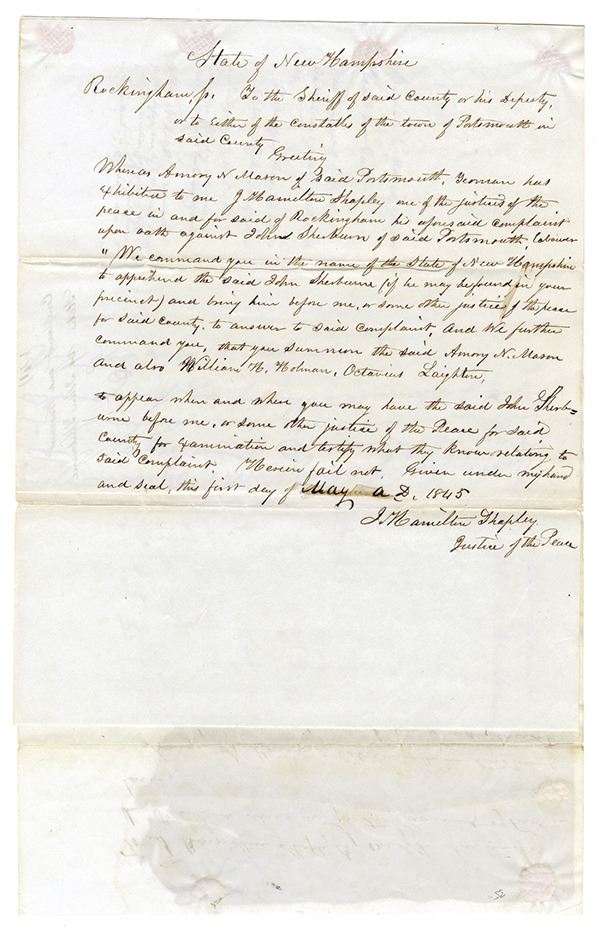 State of New Hampshire
Rockingham, ss. To the Sheriff of said County or his Deputy,
or to Either of the constables of the town of Portsmouth in
said County
Greeting
Whereas Amory N Mason of said Portsmouth, Yeoman has
Exhibited to me J Hamilton Shapley one of the justices of the
peace in and for said of Rockingham his aforesaid complaint
upon oath against John Sherburn of said Portsmouth, Laborer
"We command you in the name of the State of New Hampshire
to apprehend the said John Sherburne (if he may be found in your
precinct) and bring him before me, or some other justice of the peace
for said county, to answer to said complaint, and We further
command you, that you summon the said Amory N. Mason
and also William H. Holman, Octavius Laighton,
to appear when and where you may have the said John Sherb=
urne before me, or some other justice of the Peace for said
County for Examination and testify what they know relating to
said complaint. Herein fail not. Given under my hand
and seal, this first day of May A D. 1845
J. Hamilton Shapley
Justice of the Peace